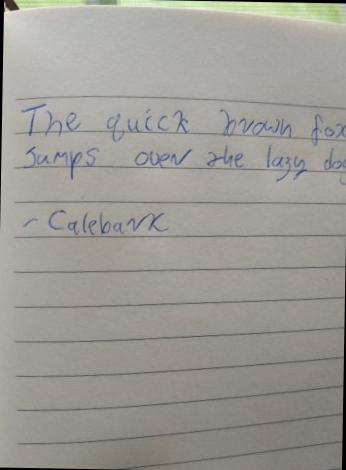 The quick brown fox
Jumps over the lazy dog
- Calebark